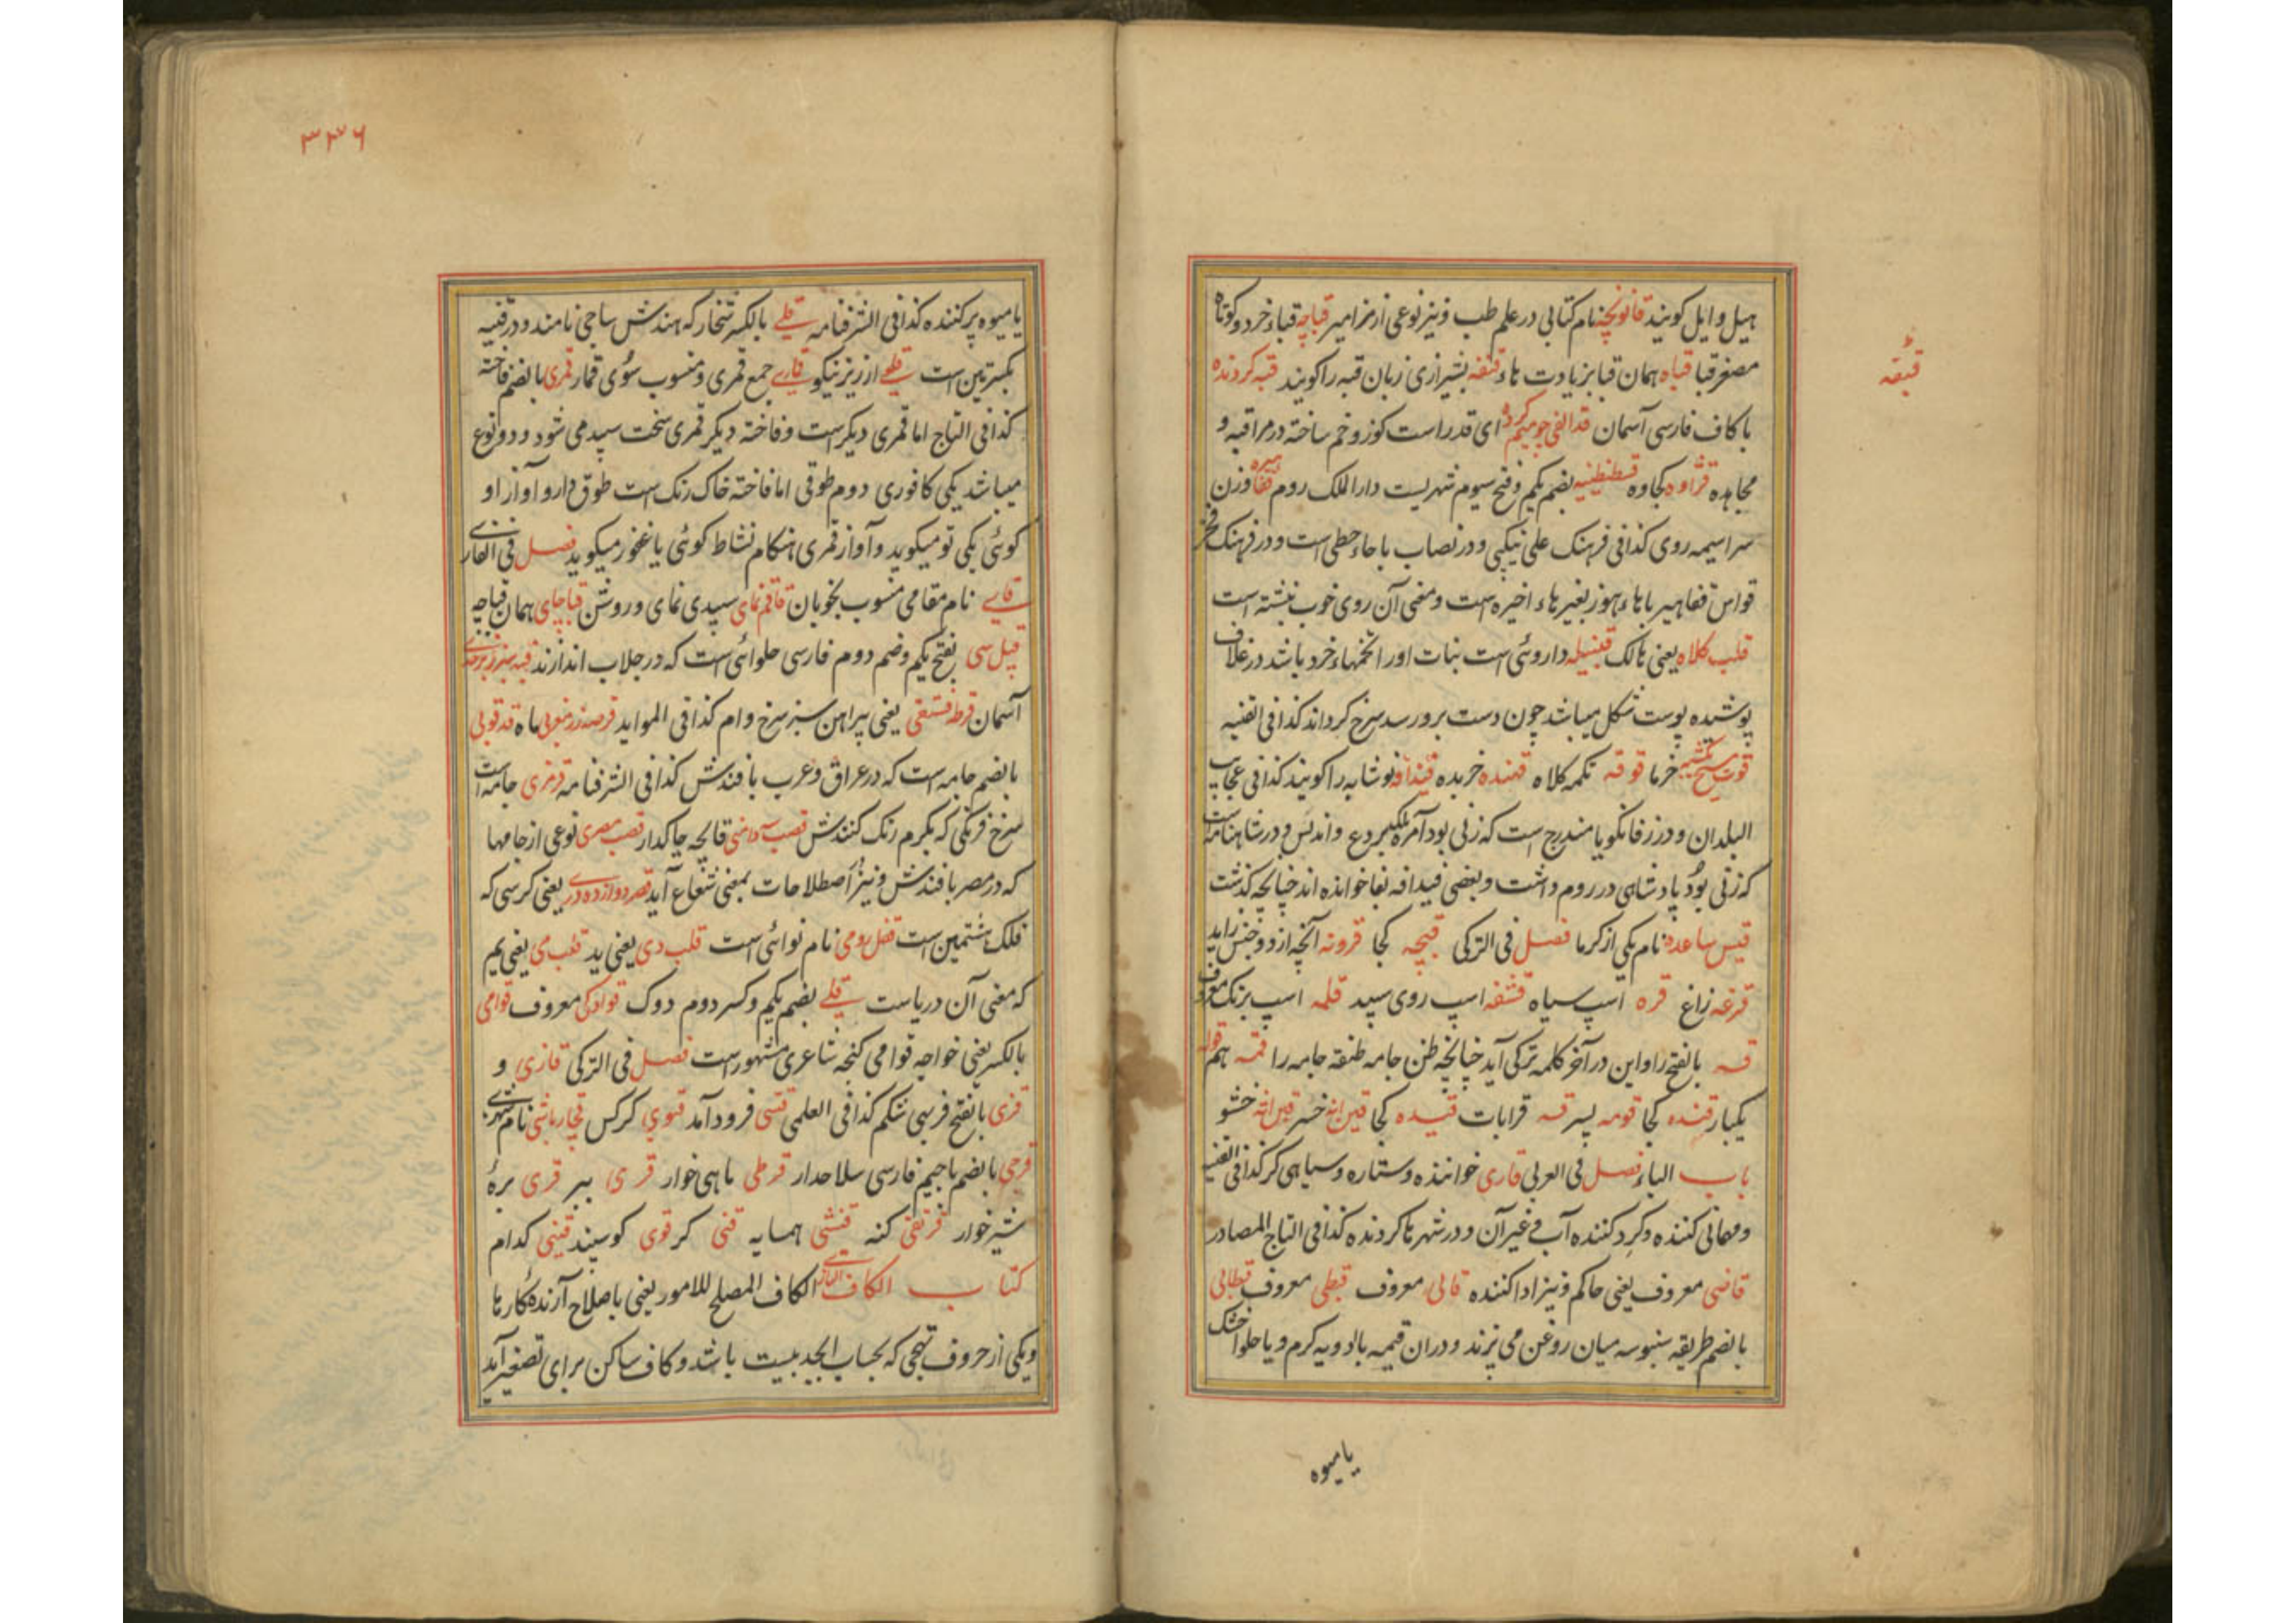 هیل و ایل کویند قانونچه نام کتابی در علم طب و نیز نوعی از مزامیر قباچه قباء خرد و کوتاه
مصغر قبا قباه همان قبا بزیادت هاء قنفه بشیرازی زبان قبه را کویند قبه کردنده
قبقه
با کاف فارسی آسمان قد الفی چو میم کرده ای قد راست کوز و خم ساخته در مراقبه و
مجاهده قژاوه کجاوه قسطنطنیه بضم یکم و فتح سیوم شهریست دار الملک روم وزن
سراسیمه روی کذا فی فرهنک علی نیکپی و در نصاب با حاء حطی است و در فرهنک فخر
قواس قفاهیر با هاء هوز بغیر هاء اخیره است و معنی آن روی خوب نبشته است
قلب کلاه یعنی هالک قنبیله داروئی است نبات او را تخمهاء خرد باشد در غلاف
پوشیده پوست شکل میباشد چون دست برو رسد سرخ کرداند کذا فی القنیه
قوت خرما قوقه تکمه کلاه قنده خربده نوشابه را کویند کذا فی عجایب
البلدان و در زفانکویا مندرج است که زنی بود آمره ملک بردع و اندلس و در شاهنامه است
که زنی بود پادشاهی در روم داشت و بعضی فیدافه بفا خوانده اند چنانچه کذشت
قیس ساعده نام یکی از کرما فصل فی الترکی قیچه کجا قرونه آنچه از دو جنس زاید
قرغه زاغ قره اسپ سیاه قشقه اسپ روی سپید قلمه اسپ بزنک معروف
قسه بالفتح را و این در آخر کلمه ترکی آید چنانچه طن جامه طنقه جامه را قمه هم قوله
یکبار قنده کجا قومه پسر قسه قرابات قنیده کجا خسر خشو
باب الیاء فصل فی العربی قاری خواننده و ستاره و سیاهی کر کذا فی القنیه
و مهمانی کننده و کرد کننده آب فی غیر آن و در شهرها کردنده کذا فی التاج المصادر
قاضی معروف یعنی حاکم و نیز ادا کننده قالی معروف قبطی معروف قطابی
بالضم طریقه سنبوسه میان روغن می پزند و در ان قیمه با ادویه کرم و یا حلواء خشک
یا میوه
۳۳۶
یا میوه پر کننده کذا فی الشرفنامه قلی بالکسر شخار که هندش ساجی نامند و در قنیه
بکسرتین است قلعی ارزیز نیکو قماری جمع قمری و منسوب سوی قمار قمری بالضم فاخته
کذا فی التاج اما قمری دیکر است و فاخته دیکر قمری سخت سپید می شود و دو نوع
میباشد یکی کافوری دوم طوقی اما فاخته خاک رنک است طوق دارد و آواز او
کوئی یکی تو میکوید و آواز قمری هنکام نشاط کوئی یا غفور میکوید فصل فی الفارسی
نام مقامی منسوب بخوبان قاقم نمای سپیدی نمای و روشن قباچای همان قباچه
بفتح یکم و ضم دوم فارسی حلوائی است که در جلاب اندازند
آسمان قرطه فستقی یعنی پیراهن سبز سرخ وام کذا فی الموایدقرصه زر مغربی ماه قدقوبی
بالضم جامه است که در عراق و عرب بافندش کذا فی الشرفنامه قرمزی جامه است
سرخ فرنکی که بکرم رنک کنندش قصب سه دامنی قالچه چاکدار قصب مصری نوعی از جامها
که در مصر بافندش و نیز اصطلاحات بمعنی شعاع آید قصر دوازده دری یعنی کرسی که
فلک هشتمین است قفل رومی نام نوائی است قلب دی یعنی ید قلب می یعنی یم
که معنی آن دریاست قلی بضم یکم و کسر دوم دوک قوادکی معروف قوامی
بالکسر یعنی خواجه قوامی کنجه شاعری مشهور است فصل فی الترکی قازی و
قزی بالفتح فربی شکم کذا فی العلمی قشی فرود آمد قنوی کرکس قچار باشی نام شهری
قرچی بالضم با جیم فارسی سلاحدار قرطی ماهی خوار قری ببر قزی بره
شیر خوار قرنقی کنه قنشی همسایه قنی کر قوی کوسپند قینی کدام
کتاب الکاف التازی الکاف المصلح للامور یعنی باصلاح آرنده کارها
و یکی از حروف تهجی که بحساب ابجد بیست باشد و کاف ساکن برای تصغیر آید